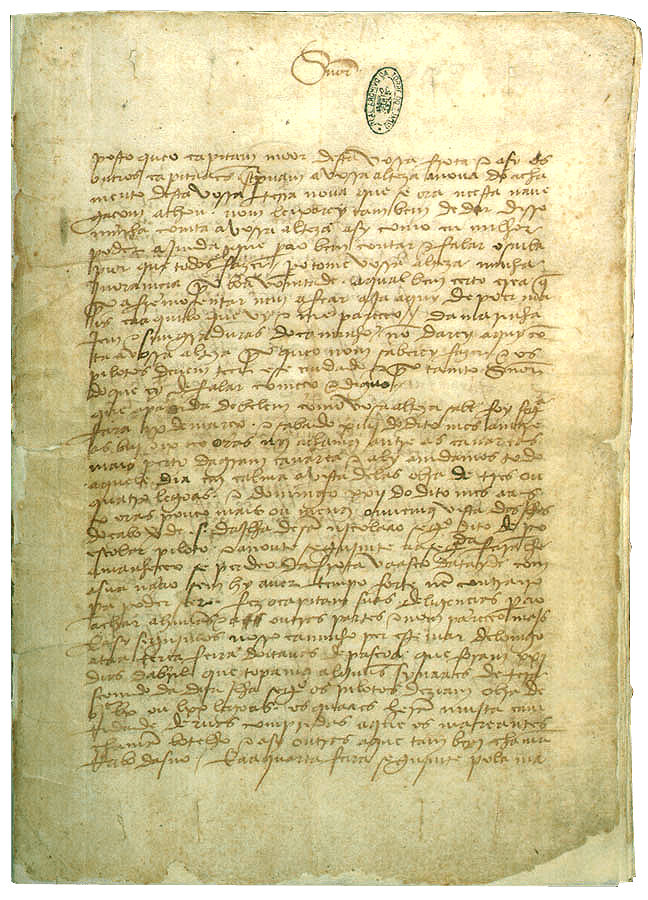 Snor
posto queo capitam moor desta vossa frota e asy os
outros capitaães screpuam avossa alteza anoua do acha
mento desta vossa terra noua que se ora neesta naue
gaçom achou. nom leixarey tambem de dar disso
minha comta avossa alteza asy como eu milhor
poder aimda que pera obem contar e falar o saiba
pior que todos fazer. pero tome vossa alteza minha
jnoramçia por boa vomtade. aqual bem certo crea q̃
por afremosentar nem afear aja aquy de poer ma
is caaquilo que vy e me pareçeo / da marinha
jem e simgraduras do caminho nõ darey aquy cõ
ta avossa alteza porque o nom saberey fazer e os
pilotos deuem teer ese cuidado e por tanto Snor
do que ey de falar começo e diguo /
que apartida de belem como vosa alteza sabe foy segª
feira ix de março. e sabado xiiij do dito mes amtre
as biij e ix oras nos achamos antre as canareas
mais perto da gram canarea e aly amdamos todo
aquele dia em calma avista delas obra de tres ou
quatro legoas. e domingo xxij do dito mes aas
x oras pouco mais ou menos ouuemos vista das jlhas
do cabo verde .s. dajlha de sã nicolaao segº dito de pº
escolar piloto. e anoute segujmte aa segª feira lhe
amanheçeo se perdeo da frota vaasco datayde com
asua naao sem hy auer tempo forte nẽ contrairo
pera poder seer. fez ocapitam suas deligençias perao
achar ahũas e outras partes e nom pareçeo majs
E asy segujmos nosso caminho per este mar delomgo
ataa terça feira doitauas de pascoa que foram xxj
dias dabril que topamos alguũs synaaes de tera
seemdo da dita jlha segº os pilotos deziam obra de
bjᶜ lx ou lxx legoas. os quaaes herã muita cam
tidade deruas compridas aque os mareantes
chamã botelho e asy outras aque tambem chamã
Rabo dasno / E aaquarta feira segujmte pola ma